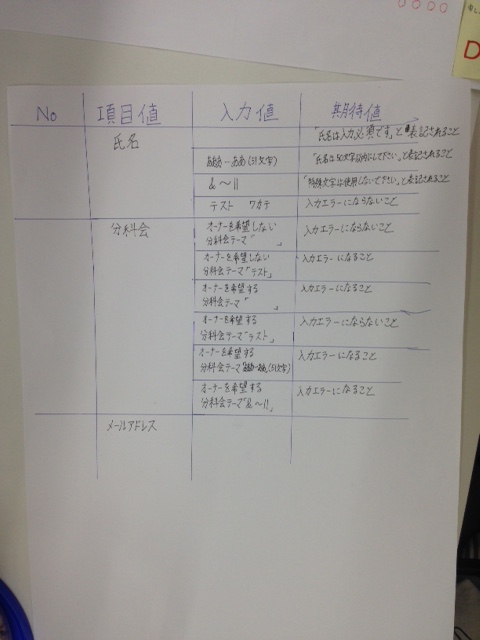 No 項目値 入力値 期待値
氏名 「氏名は入力必須です」と表記されること
ああああ…ああ(51文字) 「氏名は50文字以内にして下さい」と表記されること
&～|| 「特殊文字は使用しないで下さい」と表記されること
テスト ワカテ 入力エラーにならないこと
分科会 オーナーを希望しない 入力エラーにならないこと
分科会テーマ「 」
オーナーを希望しない 入力エラーになること
分科会テーマ「テスト」
オーナーを希望する 入力エラーになること
分科会テーマ「 」
オーナーを希望する 入力エラーにならないこと
分科会テーマ「テスト」
オーナーを希望する 入力エラーになること
分科会テーマ「ああああ…ああ」(51文字)
オーナーを希望する 入力エラーになること
分科会テーマ「&～||」
メールアドレス
D